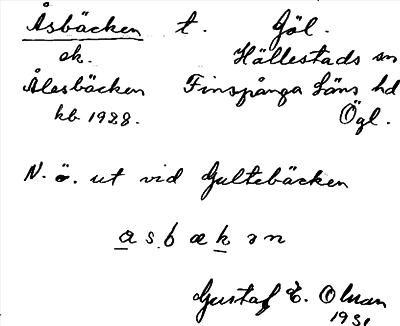 Åsbäcken t. Göl.
ek. Hällestads sn
Ålesbäcken Finspånga Läns hd
kb. 1928. Ögl.
N. ö. ut vid Gultebäcken
a s. b æ k ə n
Gustaf E. Olman
1931